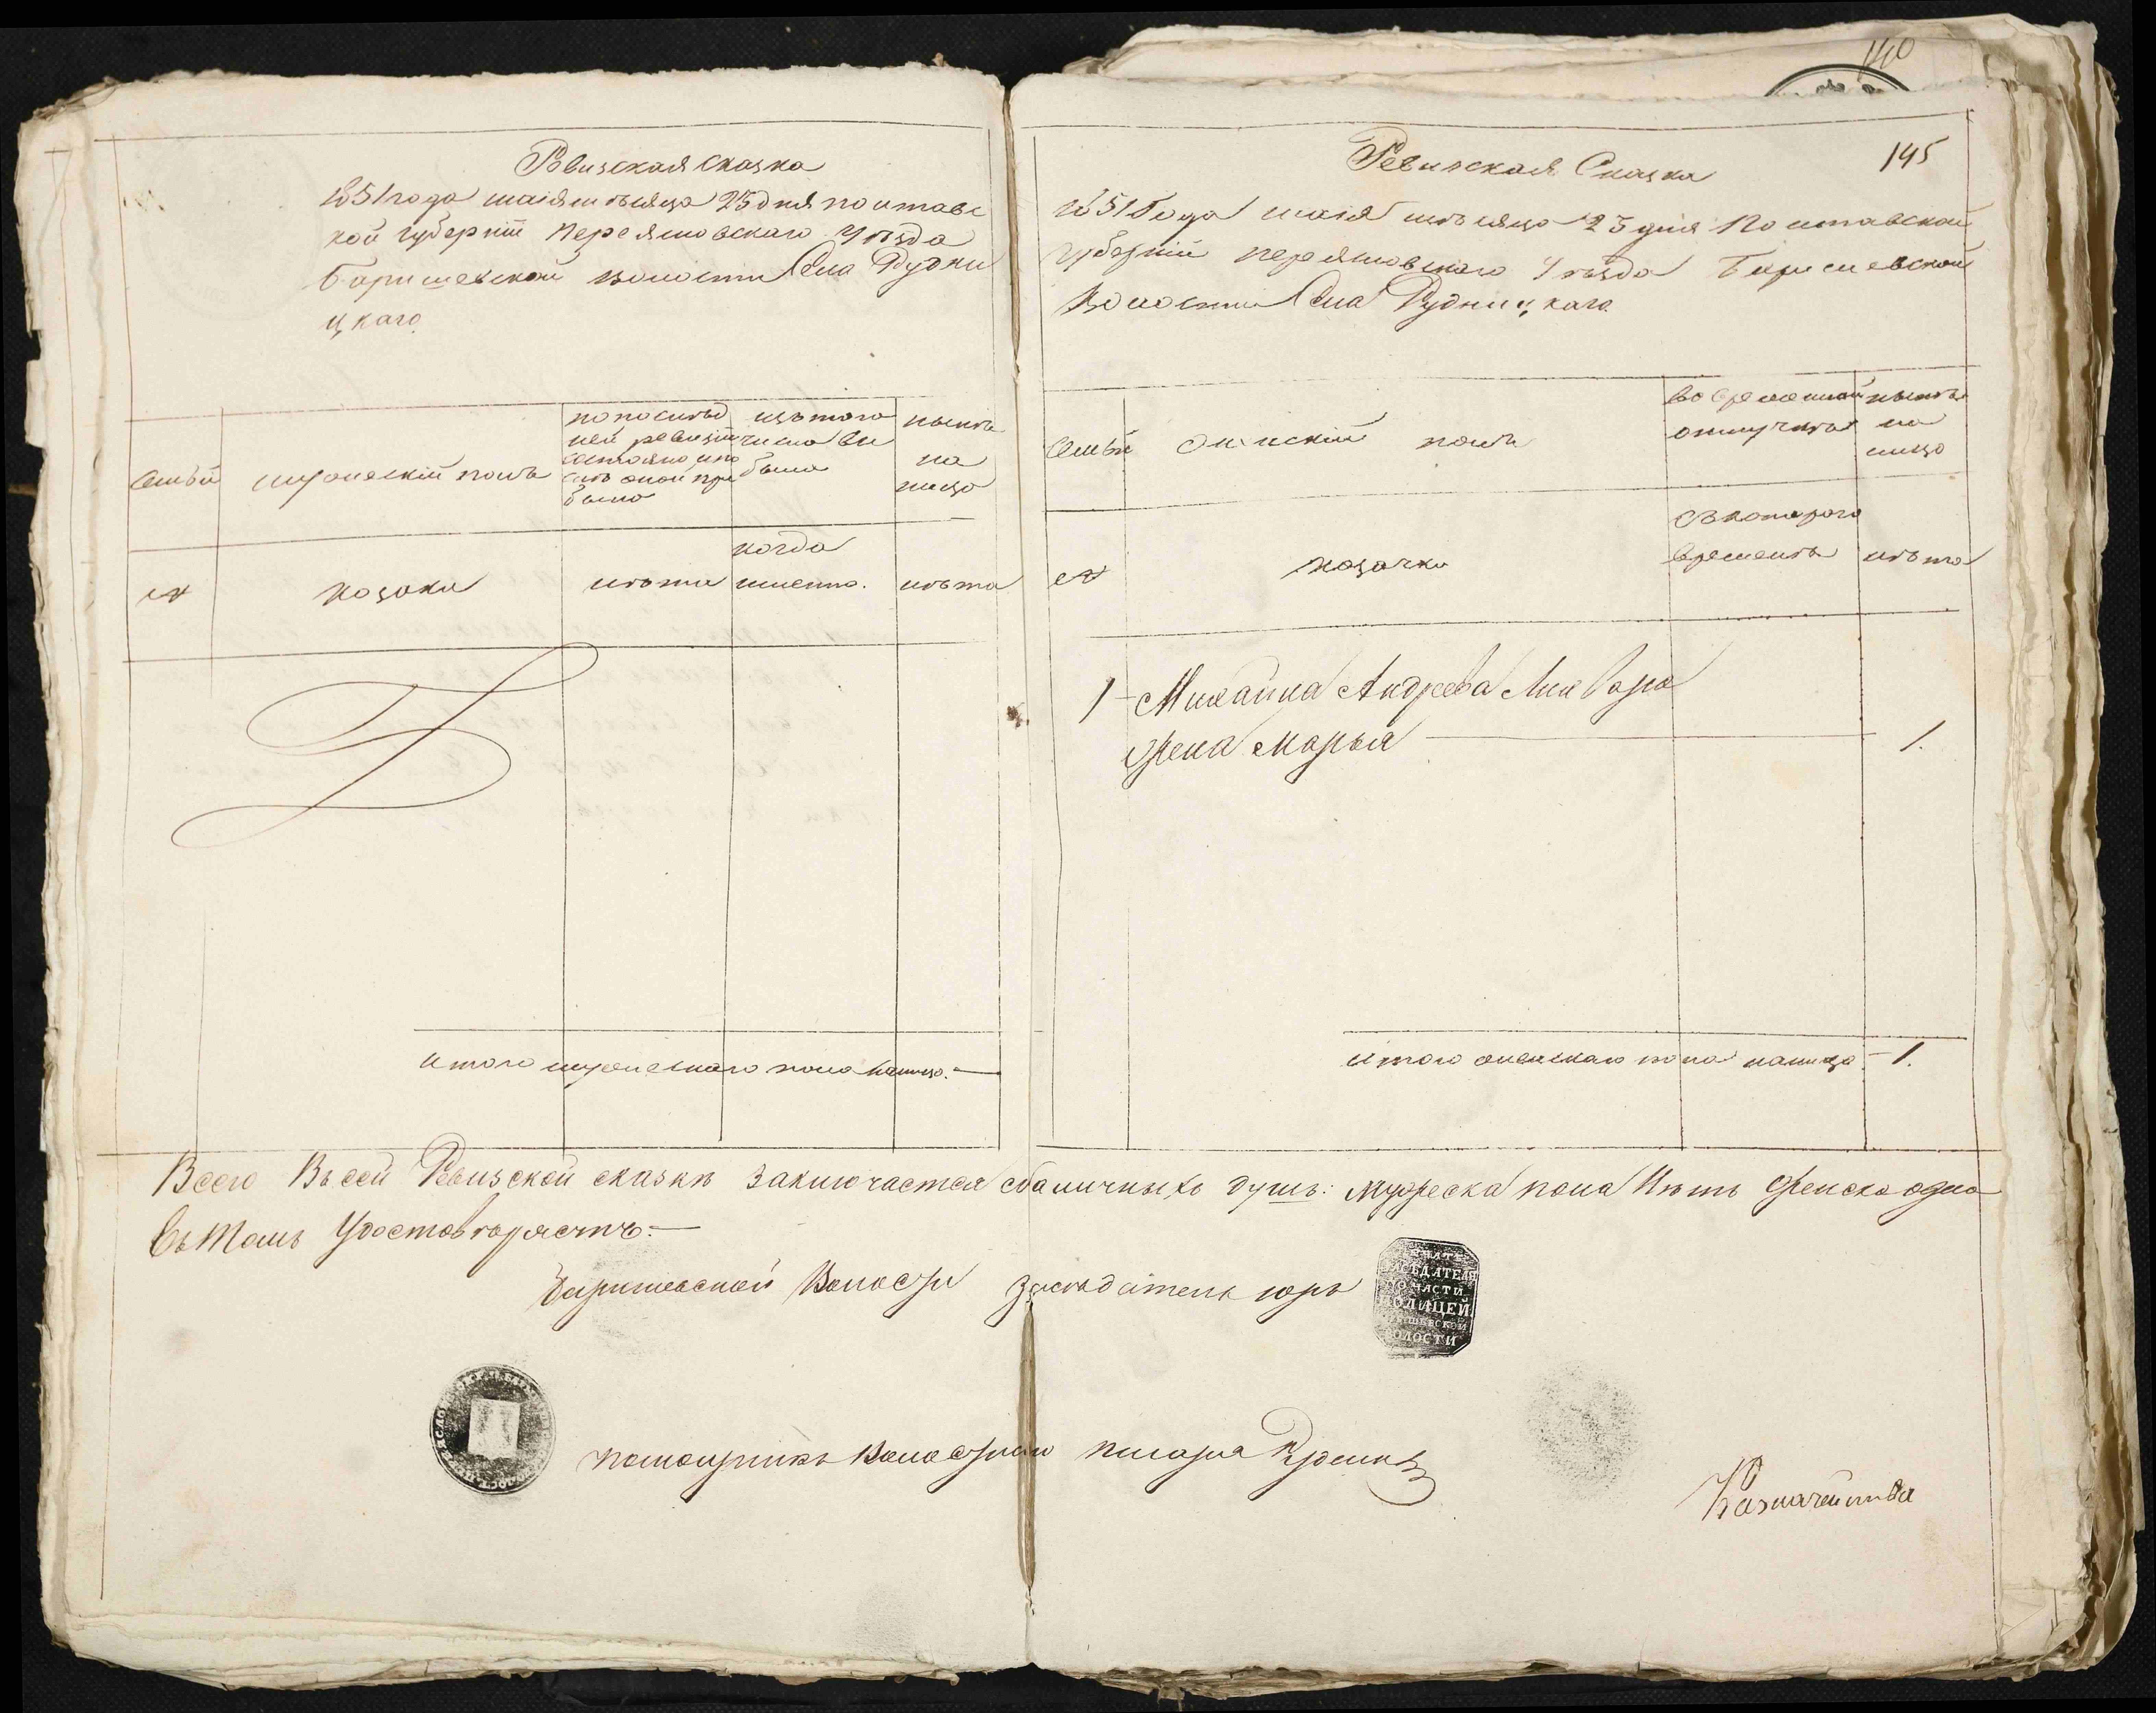 140
Ревизская сказка
1851 года маія мѣсяца 25 дня полтавс
кой губерніи переяловскаго уѣзда
баришевской волости села Рудни
цкаго
семьи
мужескій полъ
по послѣд
ней ревизіи
состояло и по
слѣ оной при
было
изъ того
числа вы
было
нынѣ
на
лицо
№
козаки
лѣта
когда
именно.
лѣта
итого мужескаго пола налицо. —
145
Ревизская Сказка
1851 Года маія мѣсяца 25 дня Полтавской
губерніи переяловскаго уѣзда Баришевской
Волости Села Рудницкаго
семьи
женскій полъ
во временной
отлучкѣ
нынѣ
на
лицо
№
козачки
съ котораго
времени
лѣта
1 Михайла Андреева
жена Марья — 1.
итого женскаго пола налицо — 1.
Всего Въ сей Ревизской сказкѣ заключается наличныхъ душъ: мужеска пола Нѣтъ женска одна
въ томъ Удостовѣряетъ: —
Баришевской Волости засѣдатель
ЗАСѢДАТЕЛЯ
ПО ЧАСТИ
ПОЛИЦЕЙ
БАРЫШЕВСКОЙ
ВОЛОСТИ
помощникъ Волостнаго писаря
Казначейства